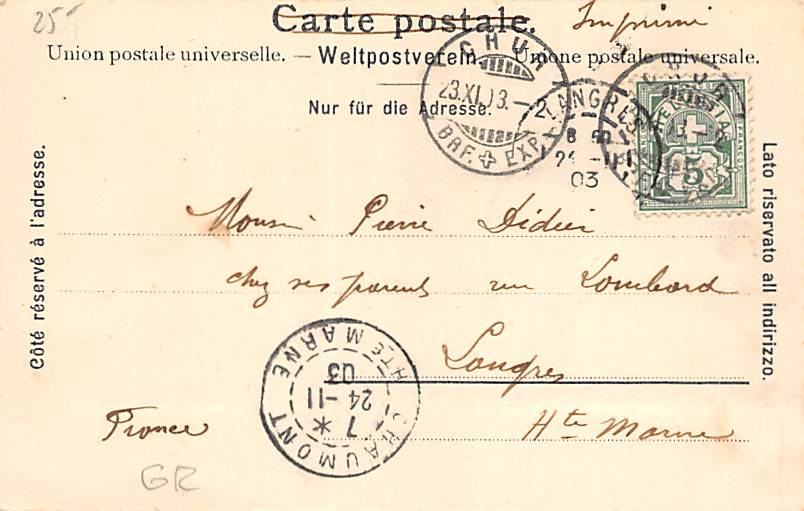 25
Carte postale.
Imprimé
Union postale universelle. — Weltpostverein — Unione postale universale.
Nur für die Adresse.
CHUR
23.XI.03.–2
BRF. EXP.
LANGRES
24 -11
03
5
Côté réservé à l'adresse.
Lato riservato all indirizzo.
Monsr Pierre Didier
chez ses parents rue Lombard
Langres
Hte Marne
France
CHAUMONT HTE MARNE
7 *
24 -11
03
GR